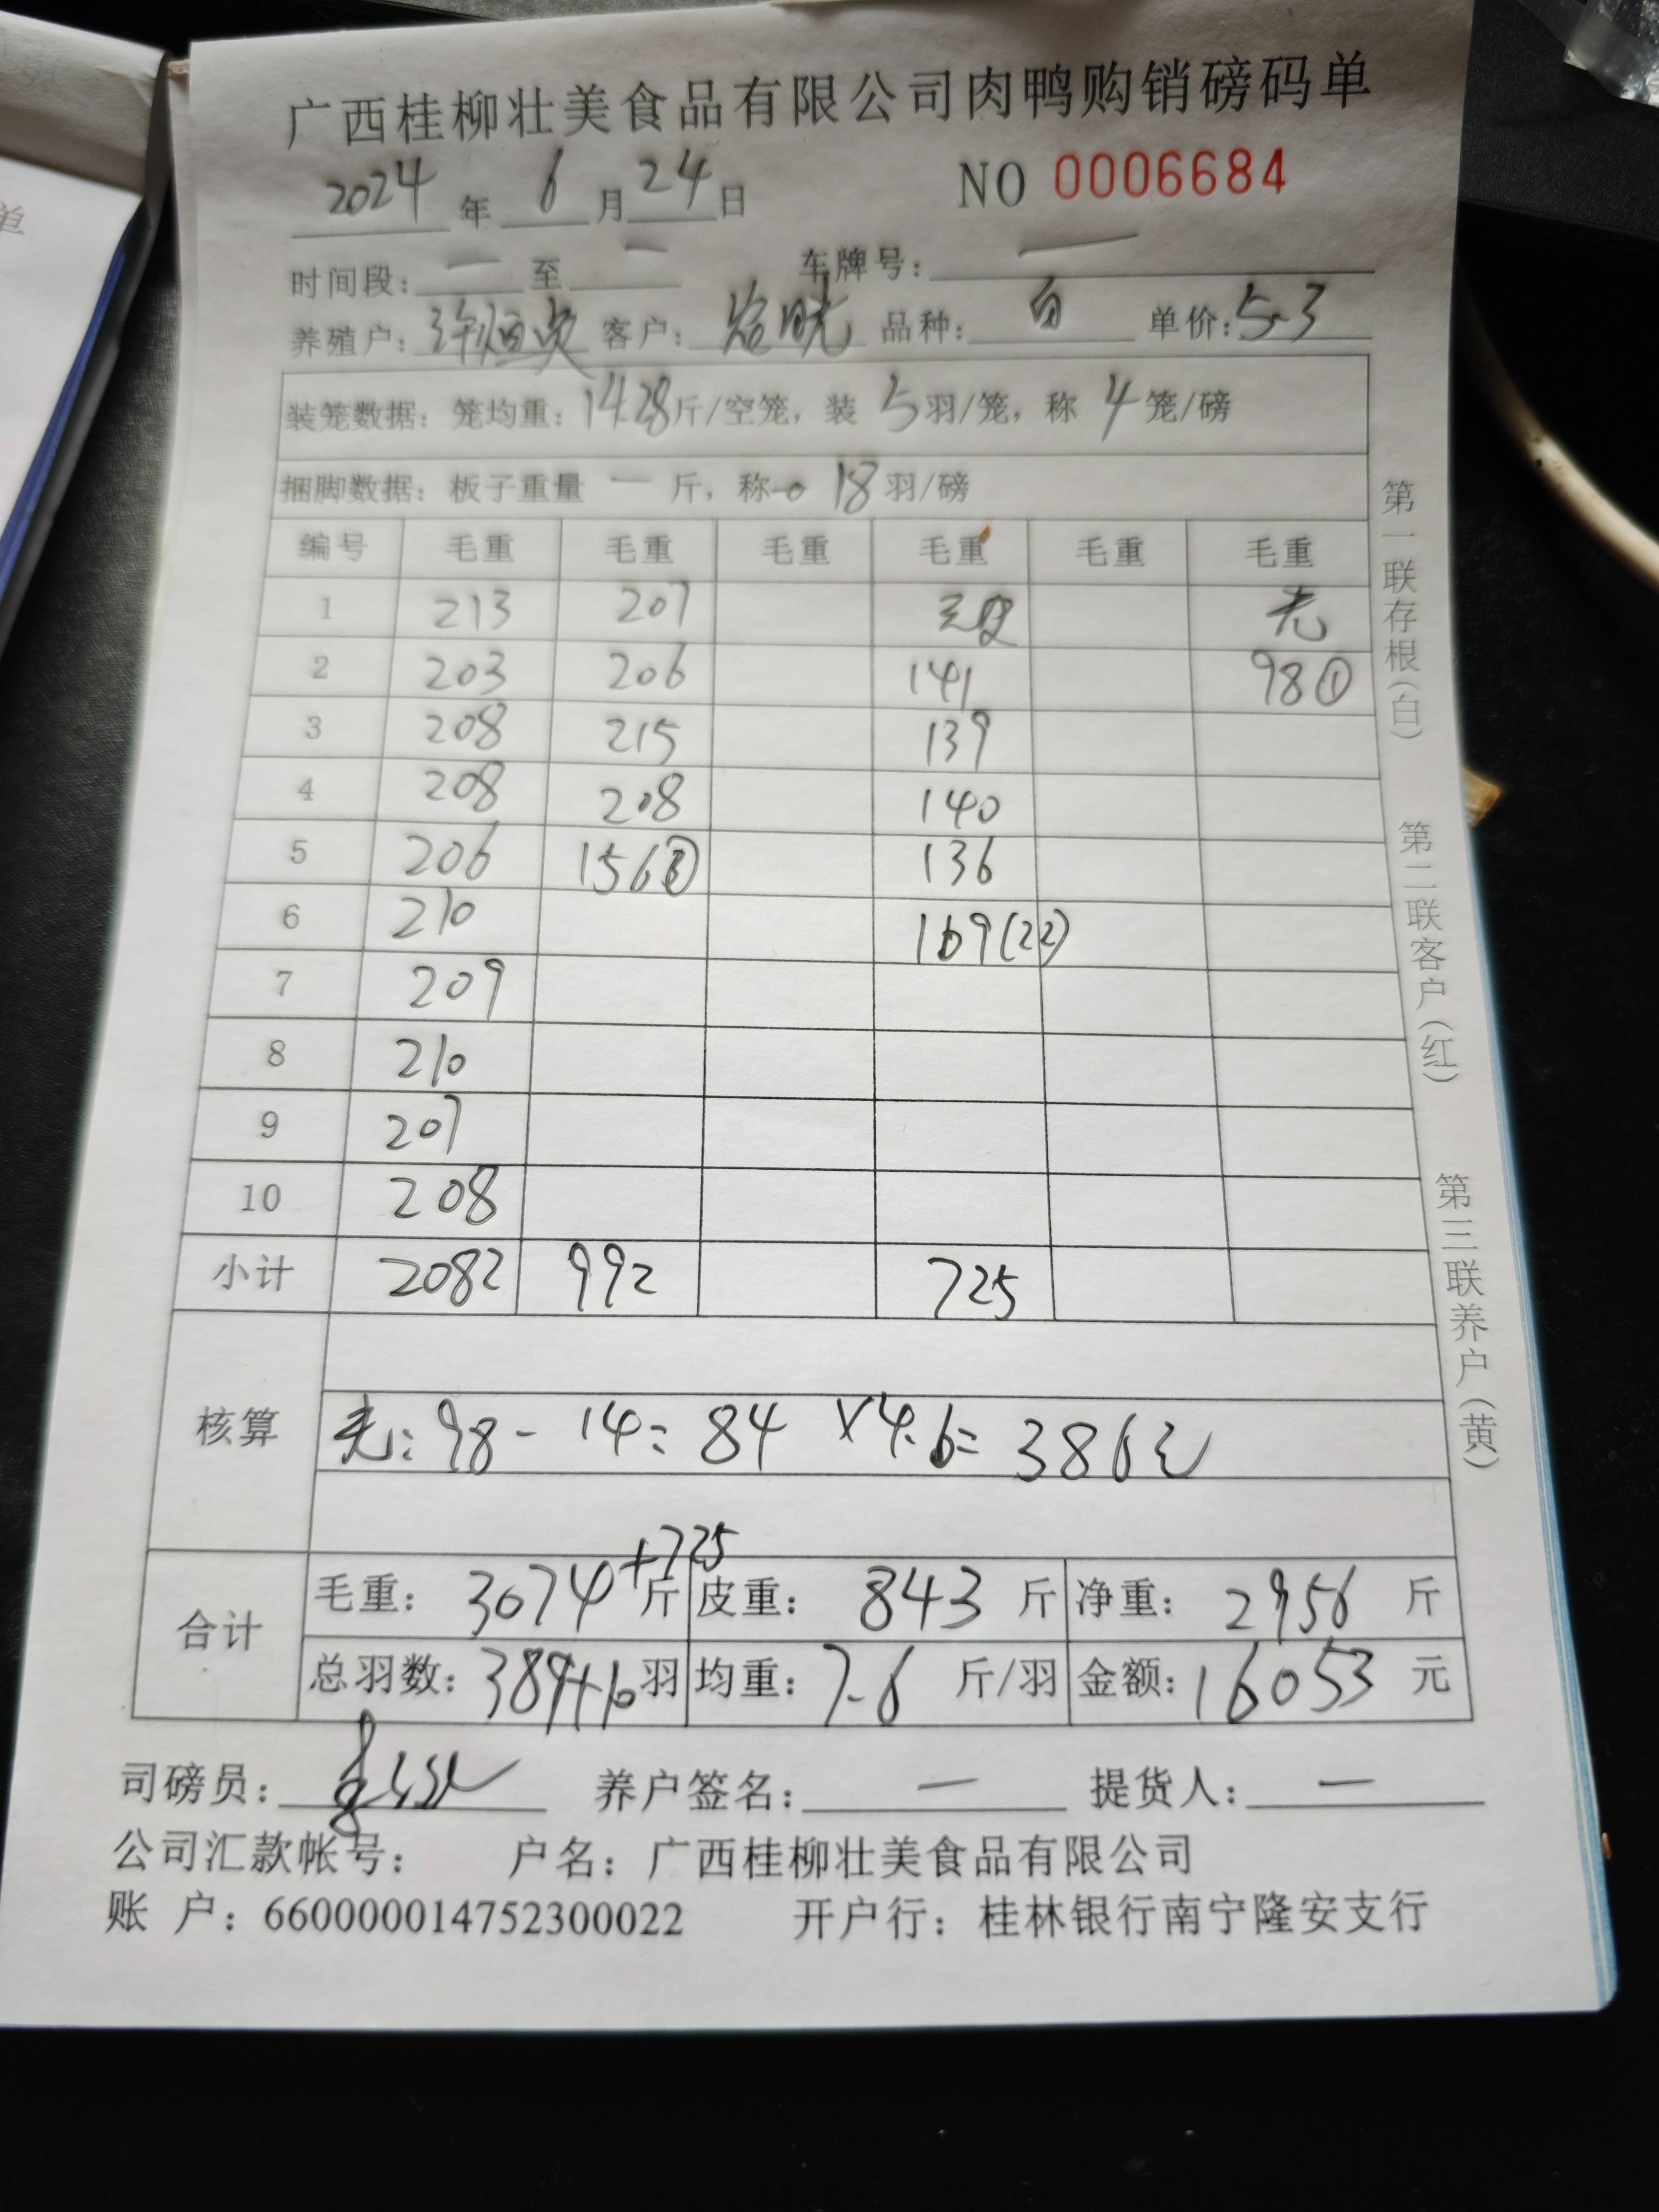 广西桂柳壮美食品有限公司肉鸭购销磅码单
2024 年 6 月 24 日 NO 0006684
时间段: 一 至 一 车牌号: 一
养殖户: 客户: 品种: 白 单价: 5.3
装笼数据: 笼均重: 14.28斤/空笼, 装 5 羽/笼, 称 4 笼/磅
捆脚数据: 板子重量 一 斤, 称 18 羽/磅
编号 毛重 毛重 毛重 毛重 毛重 毛重
1 213 207 无皮 老
2 203 206 141 98①
3 208 215 139
4 208 208 140
5 206 156③ 136
6 210 169(22)
7 209
8 210
9 207
10 208
小计 2082 992 725
核算
老: 98 - 14 = 84 × 4.6 = 386元
合计
毛重: 3074+725 斤 皮重: 843 斤 净重: 2956 斤
总羽数: 389+16 羽 均重: 7.6 斤/羽 金额: 16053 元
司磅员: 养户签名: 一 提货人: 一
公司汇款帐号: 户名: 广西桂柳壮美食品有限公司
账 户: 660000014752300022 开户行: 桂林银行南宁隆安支行
第一联存根(白)
第二联客户(红)
第三联养户(黄)
单